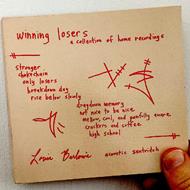 winning losers
a collection of home recordings
stronger
chokechain
only losers
breakdown day
rise below slowly
dragdown memory
not nice to be nice
mellow, cool, and painfully aware
crackers and coffee
high school
Louie Barlow's
acoustic sentridoh